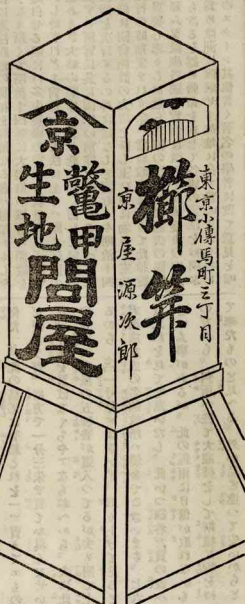 東京小傳馬町三丁目
櫛笄
京屋源次郎
京
鼈甲
生地
問屋